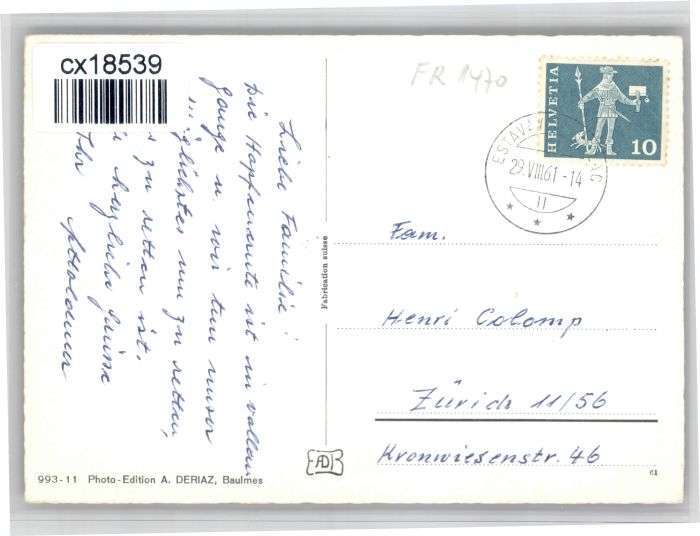 cx18539
FR 1470
HELVETIA
10
ESTAVAYER
29.VIII.61-14
Liebe Familie!
Die Hopfenernte ist in vollem
Gange u. wir tun unser
möglichstes um zu retten,
zu retten ist.
herzliche Grüsse
Ihr
Fabrication suisse
Fam.
Henri Colomp
Zürich 11/56
Kronwiesenstr. 46
993-11 Photo-Edition A. DERIAZ, Baulmes
AD
61